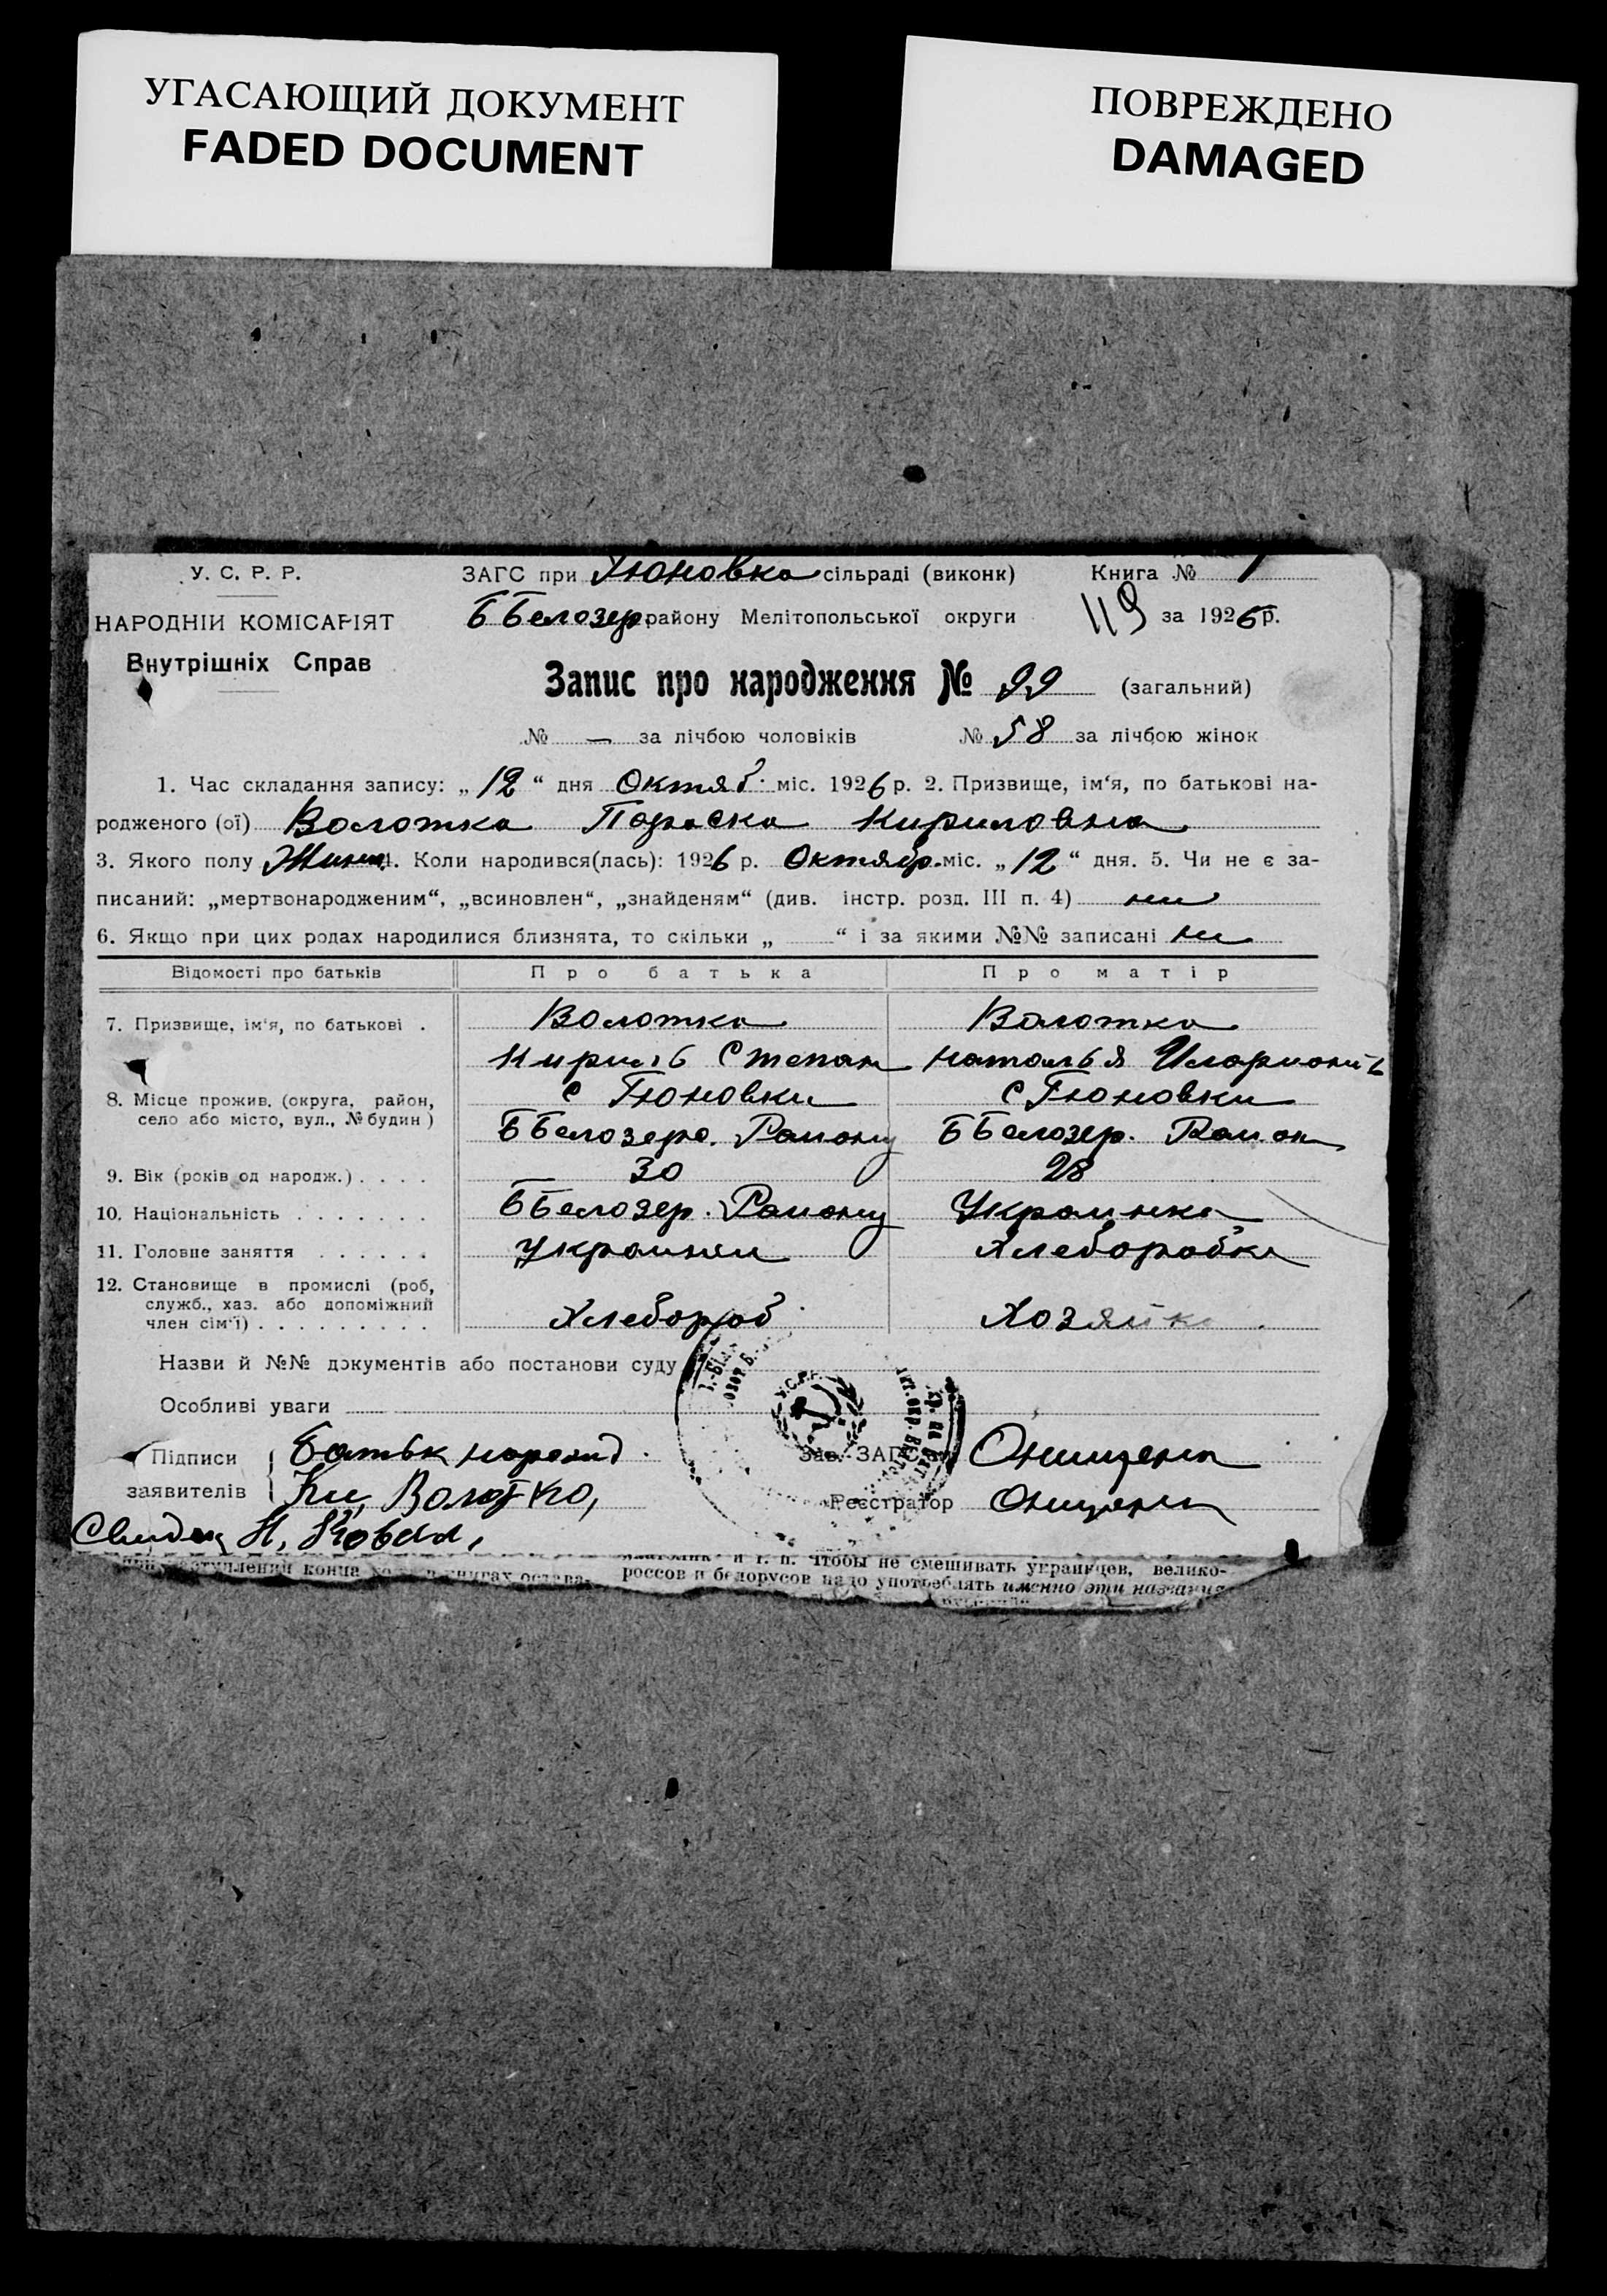 УГАСАЮЩИЙ ДОКУМЕНТ
FADED DOCUMENT
ПОВРЕЖДЕНО
DAMAGED
У. С. Р. Р.
НАРОДНІЙ КОМІСАРІЯТ
Внутрішніх Справ
ЗАГС при Гюновка сільраді (виконк)
Книга № 1
Б Белозер. району Мелітопольської округи
119 за 1926 р.
Запис про народження № 99 (загальний)
№ — за лічбою чоловіків № 58 за лічбою жінок
1. Час складання запису: „12“ дня Октяб. міс. 1926 р. 2. Призвище, ім‘я, по батькові на-
родженого (ої) Волотка Параска Кириловна
3. Якого полу Жинч. 4. Коли народився(лась): 1926 р. Октябр. міс. „12“ дня. 5. Чи не є за-
писаний: „мертвонародженим“, „всиновлен“, „знайденям“ (див. інстр. розд. III п. 4) ни
6. Якщо при цих родах народилися близнята, то скільки „ “ і за якими №№ записані ни
Відомості про батьків Про батька Про матір
7. Призвище, ім‘я, по батькові . Волотка Волотка
Кирилъ Степан Наталья Иларионів
8. Місце прожив. (округа, район, с Гюновки с Гюновки
село або місто, вул., № будин) Б Белозерс. Району Б Белозер. Район
9. Вік (років од народж.) . . . . 30 28
10. Національність . . . . . . . Б Белозер. Району Украинка
11. Головне заняття . . . . . . украинец Хлеборобка
12. Становище в промислі (роб,
служб., хаз. або допоміжний
член сім‘ї) . . . . . . . . . Хлебороб Хозяйк
Назви й №№ документів або постанови суду
Особливі уваги
У.С.Р.Р.
Підписи Батьк нарожд
Зав. ЗАГС‘ом Онищенк
заявителів Ки, Волотко,
Реєстратор Онищенк
Свидец Н, Коваль,
и т. п. Чтобы не смешивать украинцев, велико-
наступлении конца книгах остава-
россов и белорусов надо употреблять именно эти названия